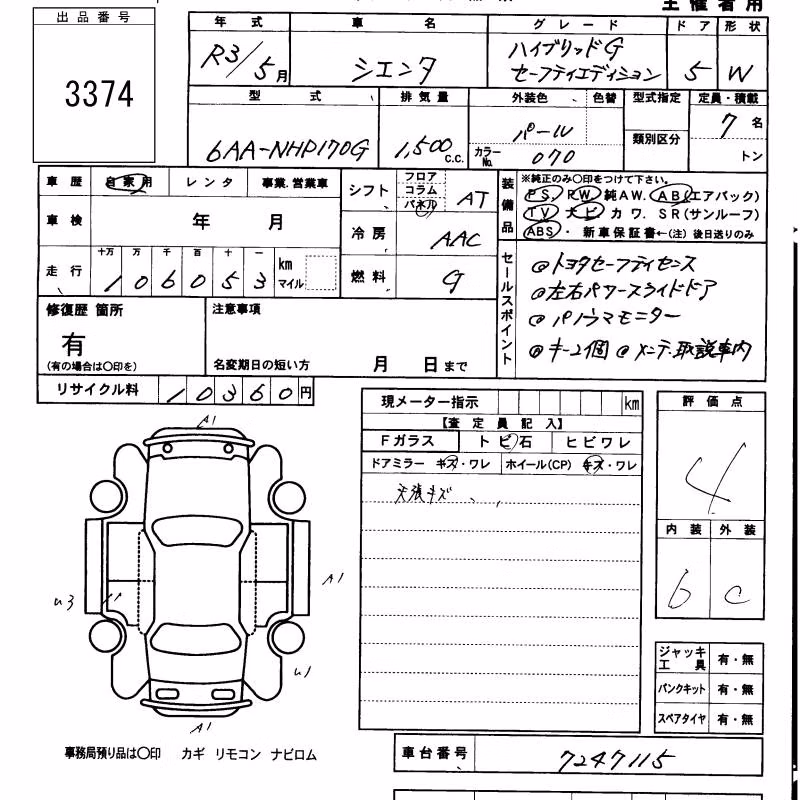 主催者用
出品番号
3374
年式 車名 グレード ドア 形状
R3/5月 シエンタ ハイブリッドG
セーフティエディション 5 W
型式 排気量 外装色 色替 型式指定 定員・積載
6AA-NHP170G 1,500c.c. パール 類別区分 7名
カラーNo. 070 トン
車歴 自家用 レンタ 事業.営業車
シフト フロア コラム パネル AT
装備品 ※純正のみ〇印をつけて下さい。
PS. PW 純AW. AB(エアバック)
TV ナビ カワ. SR(サンルーフ)
ABS・ 新車保証書←(注) 後日送りのみ
車検 年 月
冷房 AAC
走行 十万 万 千 百 十 一
106053 km マイル
燃料 G
セールスポイント
◎トヨタセーフティセンス
◎左右パワースライドドア
◎パノラマモニター
◎キー2個 ◎メンテ.取説車内
修復歴 箇所
有
(有の場合は〇印を)
注意事項
名変期日の短い方 月 日まで
リサイクル料 10360円
現メーター指示 km
【査定員記入】
Fガラス トビ石 ヒビワレ
ドアミラー キズ・ワレ ホイール(CP) キズ・ワレ
天張キズ
評価点
4
内装 外装
b c
A1
A1
U3
A1
U1
A1
ジャッキ工具 有・無
パンクキット 有・無
スペアタイヤ 有・無
事務局預り品は〇印 カギ リモコン ナビロム
車台番号 7247115